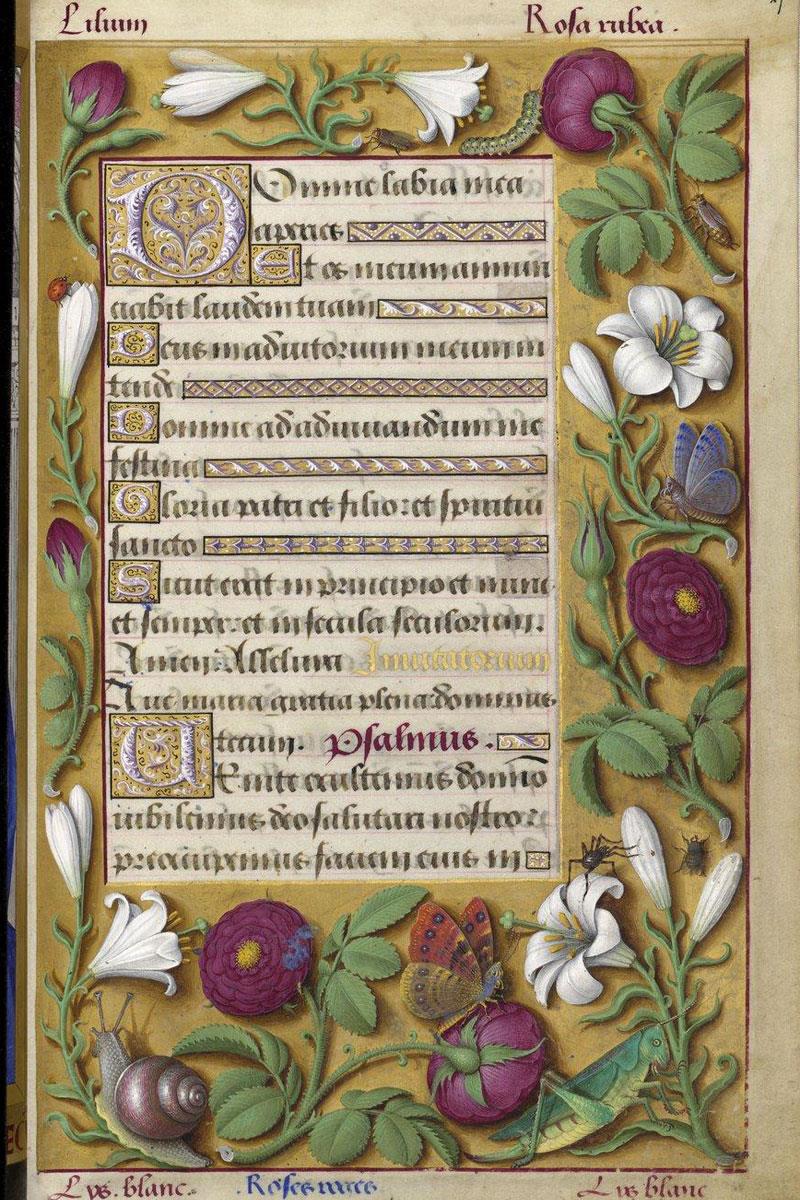 Lilium
Rosa rubea.
Domine labia mea
aperies
Et os meum annun
ciabit laudem tuam
Deus in adiutorium meum in
tende
Domine ad adiuuandum me
festina
Gloria patri et filio: et spiritui
sancto
Sicut erat in principio et nunc
et semper: et in secula seculorum.
Amen. Alleluya Inuitatorium
Aue maria gratia plena dominus
tecum. Psalmus.
Uenite exultemus domino
iubilemus deo salutari nostro:
preocupemus faciem eius in
Lys blanc.
Roses
Lis blanc